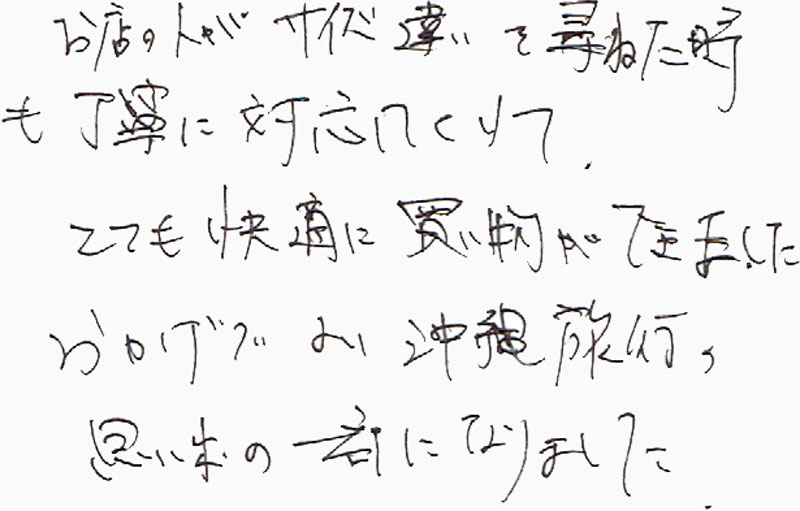 お店の人がサイズ違いを尋ねた時
も丁寧に対応してくれて、
とても快適に買い物ができました
おかげでよい沖縄旅行の
思い出の一部になりました。